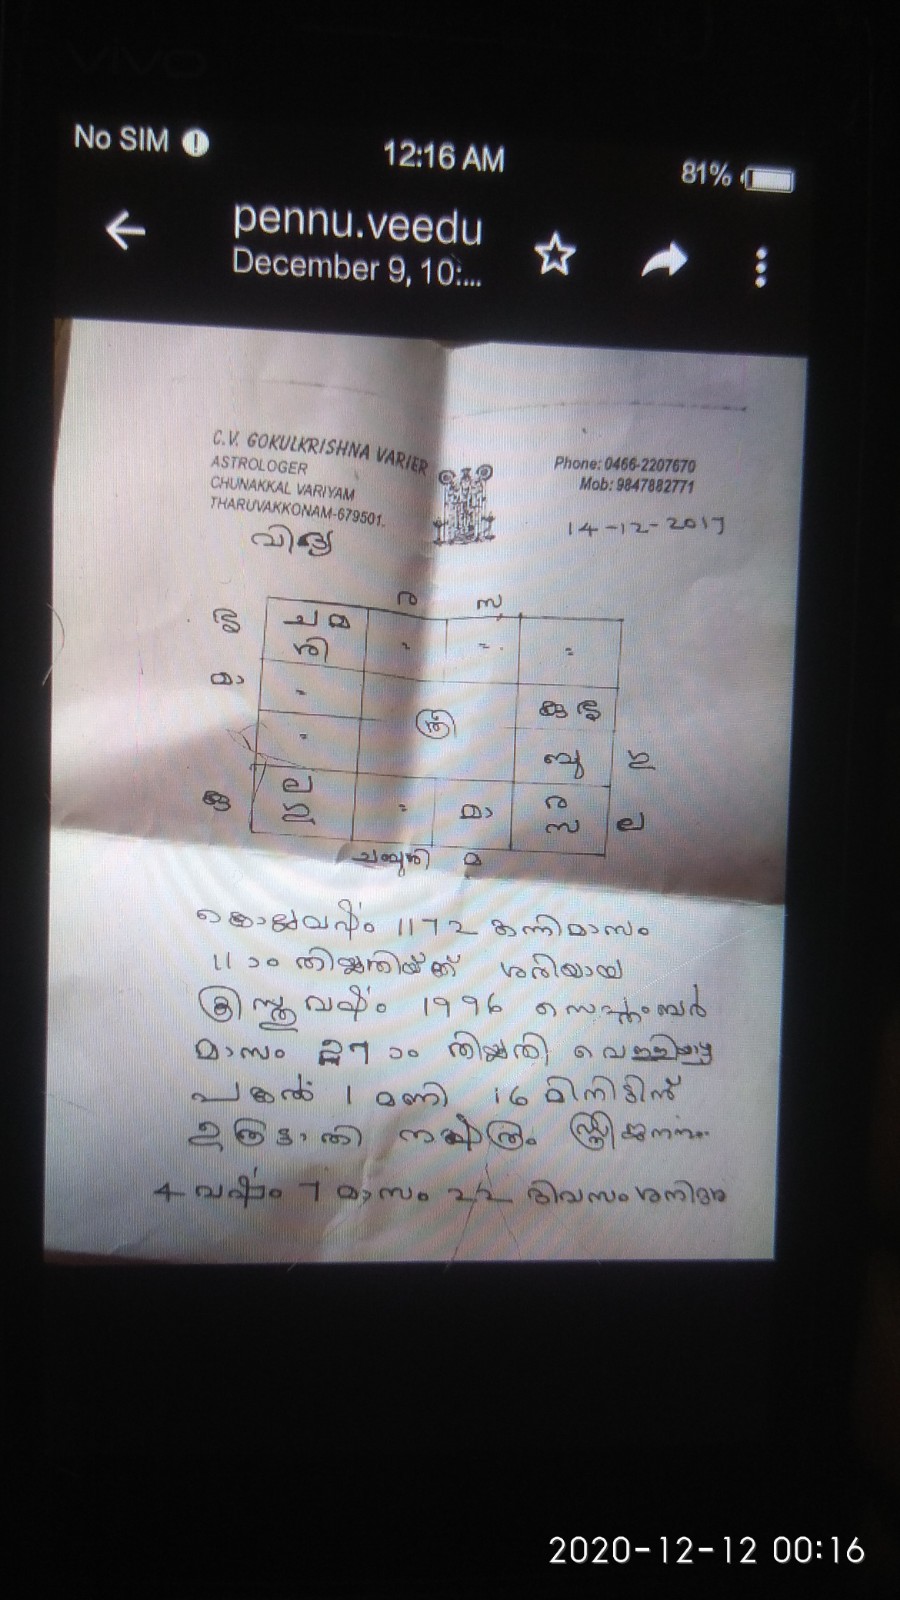 vivo
No SIM
12:16 AM
81%
pennu.veedu
December 9, 10:...
C.V. GOKULKRISHNA VARIER
ASTROLOGER
CHUNAKKAL VARIYAM
THARUVAKKONAM-679501.
Phone: 0466-2207670
Mob: 9847882771
14-12-2017
വിദ്യ
ര സ
ച മ
ശി
മാ
കു
ബു
ല
ഗു
മാ
ര
സ
ല
മ
കൊല്ലവർഷം 1172 കന്നിമാസം
11 ാം തിയ്യതിയ്ക്ക് ശരിയായ
ക്രിസ്തുവർഷം 1996 സെപ്തംബർ
മാസം 27 ാം തിയ്യതി വെള്ളിയാഴ്ച
പകൽ 1 മണി 16 മിനിട്ടിന്
ഉത്രട്ടാതി നക്ഷത്രം സ്ത്രീജനനം
4 വർഷം 7 മാസം 22 ദിവസം ശനിദശ
2020-12-12 00:16